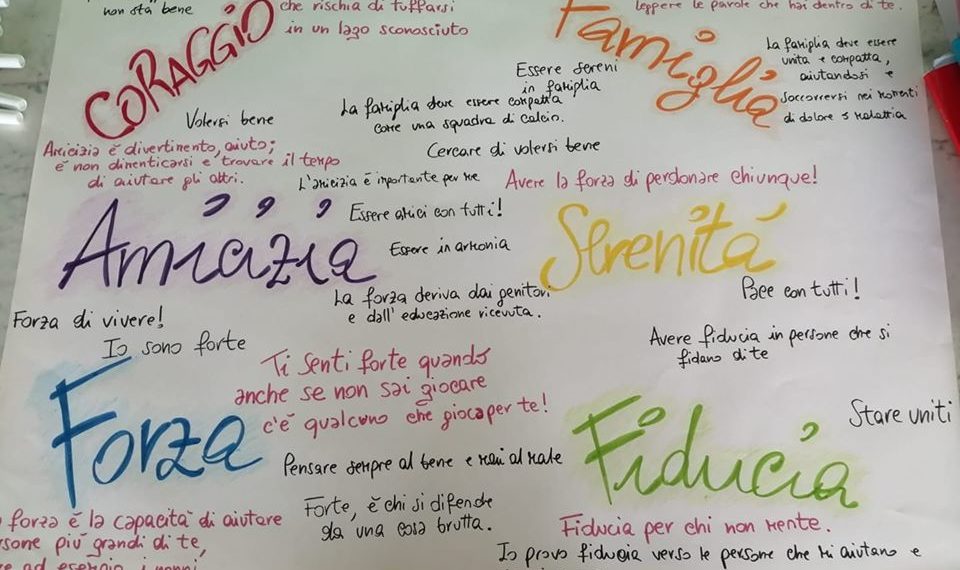 non sta bene
che rischia di tuffarsi
in un lago sconosciuto
CORAGGIO
leggere le parole che hai dentro di te.
Famiglia
La famiglia deve essere
unita e compatta,
aiutandosi e
soccorrersi nei momenti
di dolore e malattia
Essere sereni
in famiglia
Volersi bene
La famiglia deve essere compatta
come una squadra di calcio.
Cercare di volersi bene
Amicizia è divertimento, aiuto;
è non dimenticarsi e trovare il tempo
di aiutare gli altri.
L'amicizia è importante per me
Avere la forza di perdonare chiunque!
Amicizia
Essere amici con tutti!
Essere in armonia
Serenità
La forza deriva dai genitori
e dall'educazione ricevuta.
Pace con tutti!
Forza di vivere!
Io sono forte
Avere fiducia in persone che si
fidano di te
Ti senti forte quando
anche se non sai giocare
c'è qualcuno che gioca per te!
Forza
Stare uniti
Fiducia
Pensare sempre al bene e mai al male
Forte, è chi si difende
da una cosa brutta.
forza è la capacità di aiutare
più grandi di te,
ad esempio i nonni
Fiducia per chi non mente.
Io provo fiducia verso le persone che mi aiutano e